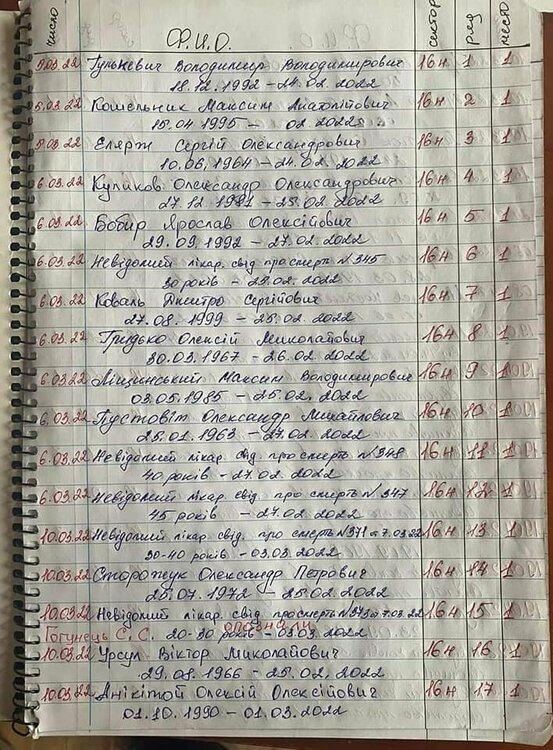 число Ф.И.О. сектор ряд место
5.03.22 Гулькевич Володимир Володимирович 16н 1 1
18.12.1992 – 24.02.2022
5.03.22 Кошельник Максим Анатолійович 16н 2 1
15.04 1995 – 02.2022
5.03.22 Елярж Сергій Олександрович 16н 3 1
10.06.1964 – 24.02.2022
6.03.22 Куликов Олександр Олександрович 16н 4 1
27.12.1981 – 25.02.2022
6.03.22 Бобир Ярослав Олексійович 16н 5 1
29.09.1992 – 27.02.2022
6.03.22 Невідомий лікар. свід. про смерть №345 16н 6 1
30 років – 25.02.2022
6.03.22 Коваль Дмитро Сергійович 16н 7 1
27.08.1999 – 25.02.2022
6.03.22 Гридько Олексій Миколайович 16н 8 1
30.03.1967 – 26.02.2022
6.03.22 Ліщинський Максим Володимирович 16н 9 1
03.05.1985 – 25.02.2022
6.03.22 Пустовіт Олександр Михайлович 16н 10 1
25.01.1963 – 27.02.2022
6.03.22 Невідомий лікар. свід. про смерть №348 16н 11 1
40 років – 27.02.2022
6.03.22 Невідомий лікар. свід. про смерть №347 16н 12 1
45 років – 27.02.2022
10.03.22 Невідомий лікар. свід. про смерть №371 від 7.03.22 16н 13 1
30-40 років – 03.03.2022
10.03.22 Сторожук Олександр Петрович 16н 14 1
25.07.1972 – 25.02.2022
10.03.22 Невідомий лікар. свід. про смерть №373 від 7.03.22 16н 15 1
опознали
Гогунець С. С. 20-30 років – 03.03.2022
10.03.22 Урсул Віктор Миколайович 16н 16 1
29.08.1966 – 25.02.2022
10.03.22 Анікітой Олексій Олексійович 16н 17 1
01.10.1990 – 01.03.2022